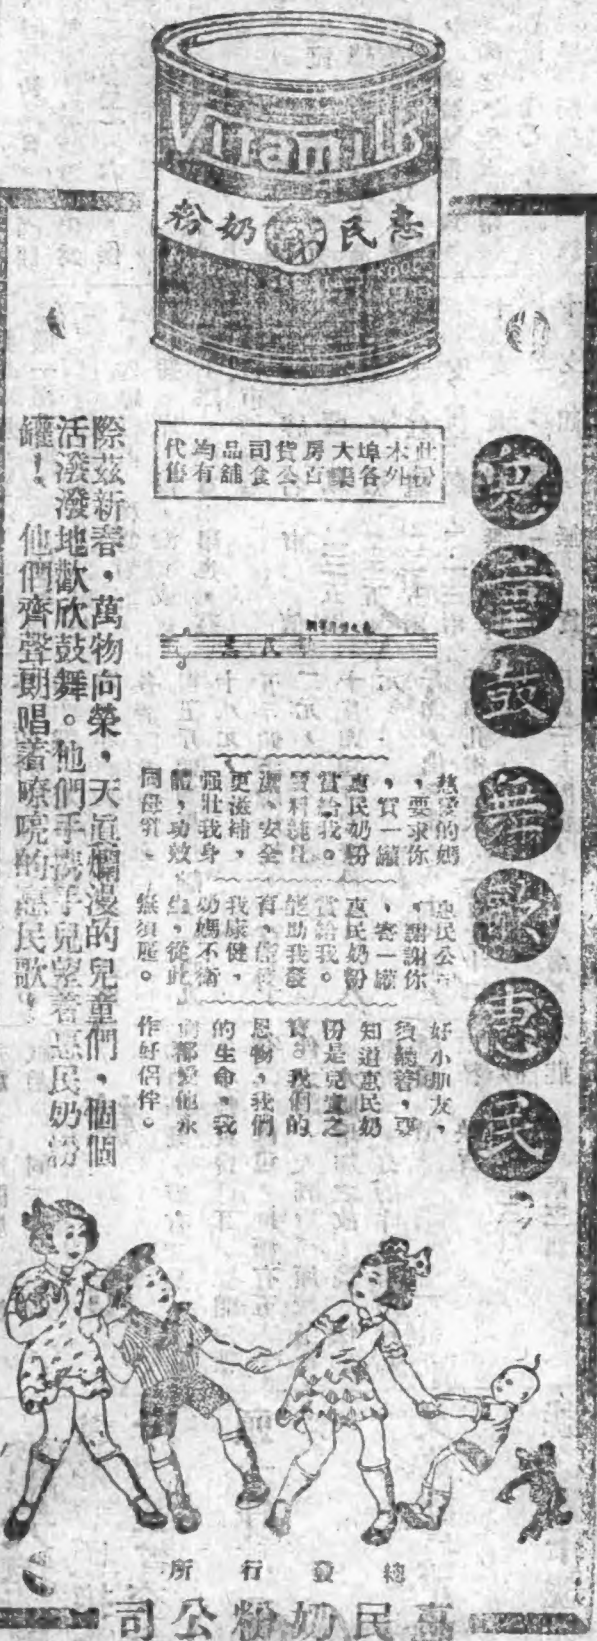 Vitamilk
惠民奶粉
此粉
本外
埠各
大藥
房百
貨公
司食
品舖
均有
代售
兒童鼓舞歌惠民
熱愛的媽
，要求你
，買一罐
惠民奶粉
賞給我。
潔，安全
更滋補，
强壯我身
體，功效
同母乳。
惠民公司
，謝謝你
，寄一罐
惠民奶粉
賞給我。
能助我發
我康健，
奶媽不衛
生，從此
無須雇。
好小朋友，
須聽着，要
知道惠民奶
粉是兒童之
寶。我們的
恩物，我們
的生命，我
們都愛他永
作好侶伴。
除茲新春，萬物向榮，天真爛漫的兒童們，個個
活潑潑地歡欣鼓舞。他們手攜手兒望着惠民奶粉
罐！他們齊聲朗唱着嘹喨的惠民歌！
總發行所
惠民奶粉公司